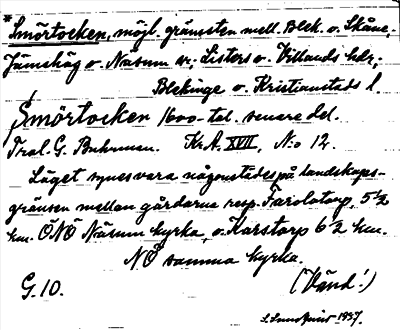 *Smörtocken, möjl. gränssten mell. Blek. o. Skåne,
Jämshög o. Näsum sn; Listers o. Villands hdr,
Blekinge o. Kristianstads l.
Smörtocken 1600-tal. senare del.
Tral. G. Buhrman. Kr.A. XVII, N:o 12.
Läget synes vara någonstädes på landskaps-
gränsen mellan gårdarne resp. Farolatorp, 5½
km. ÖNÖ Näsum kyrka, o. Karstorp 6½ km.
NÖ samma kyrka.
G. 10. (Vänd!)
1937.